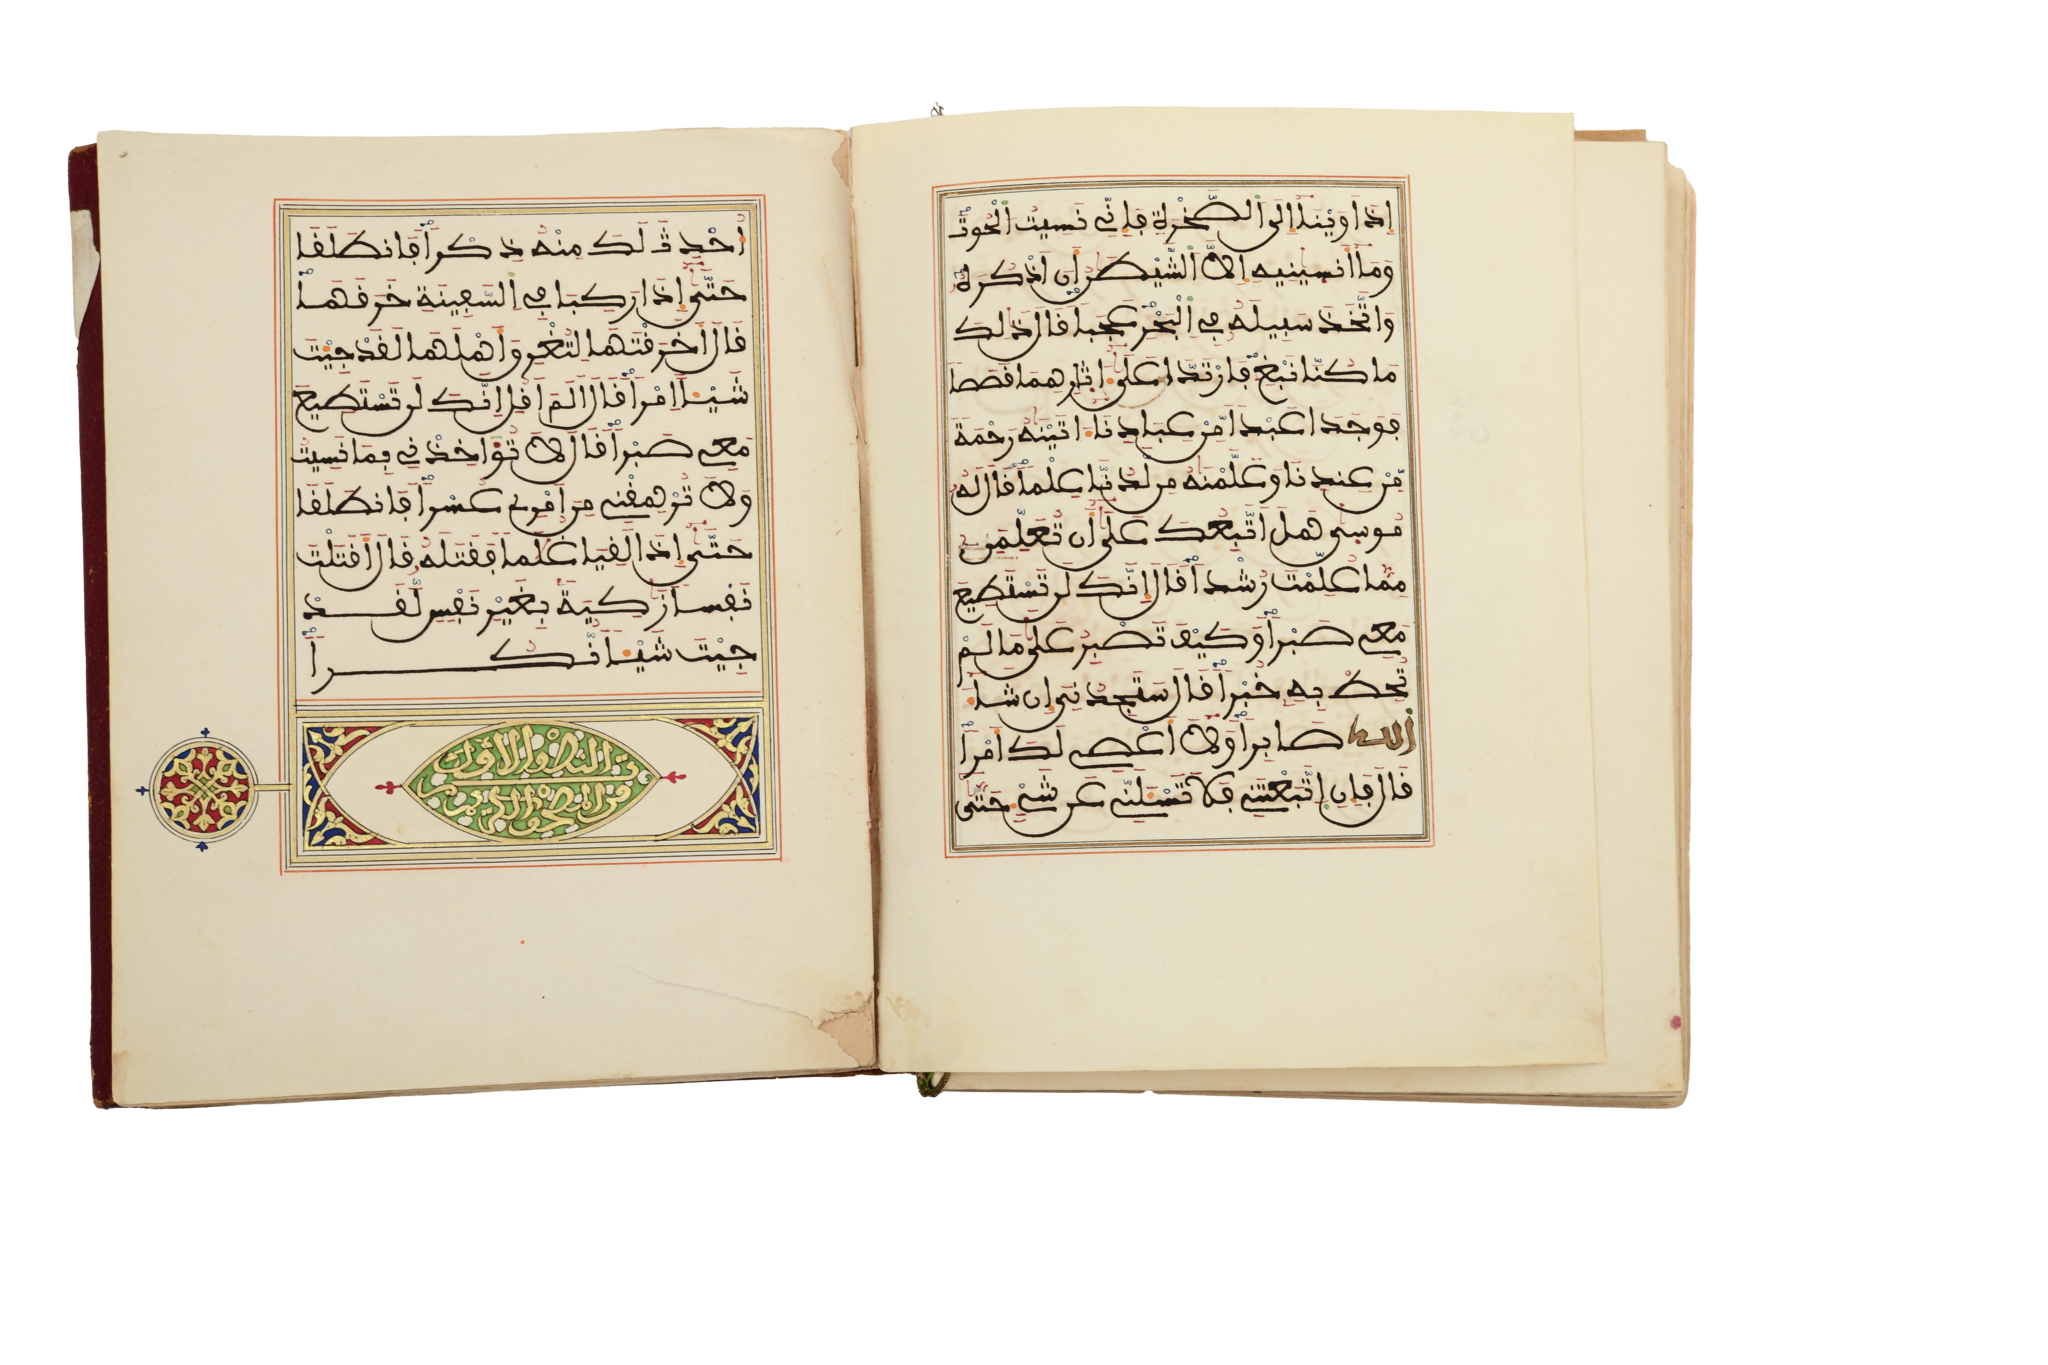 إذ اوينا إلى الصخرة فإني نسيت الحوت
وما أنسينيه إلا الشيطن أن اذكره
واتخذ سبيله في البحر عجبا قال ذلك
ما كنا نبغ فارتدا على اثارهما قصصا
فوجدا عبدا من عبادنا اتينه رحمة
من عندنا وعلمنه من لدنا علما قال له
موسى هل اتبعك على أن تعلمن
مما علمت رشدا قال إنك لن تستطيع
معي صبرا وكيف تصبر على ما لم
تحط به خبرا قال ستجدني إن شا
الله صابرا ولا أعصي لك أمرا
قال فإن اتبعتني فلا تسئلني عن شيء حتى
أحدث لك منه ذكرا فانطلقا
حتى إذا ركبا في السفينة خرقها
قال أخرقتها لتغرق أهلها لقد جيت
شيئا إمرا قال ألم أقل إنك لن تستطيع
معي صبرا قال لا تؤاخذني بما نسيت
ولا ترهقني من أمري عسرا فانطلقا
حتى إذا لقيا غلما فقتله قال أقتلت
نفسا زكية بغير نفس لقد
جيت شيئا نكرا